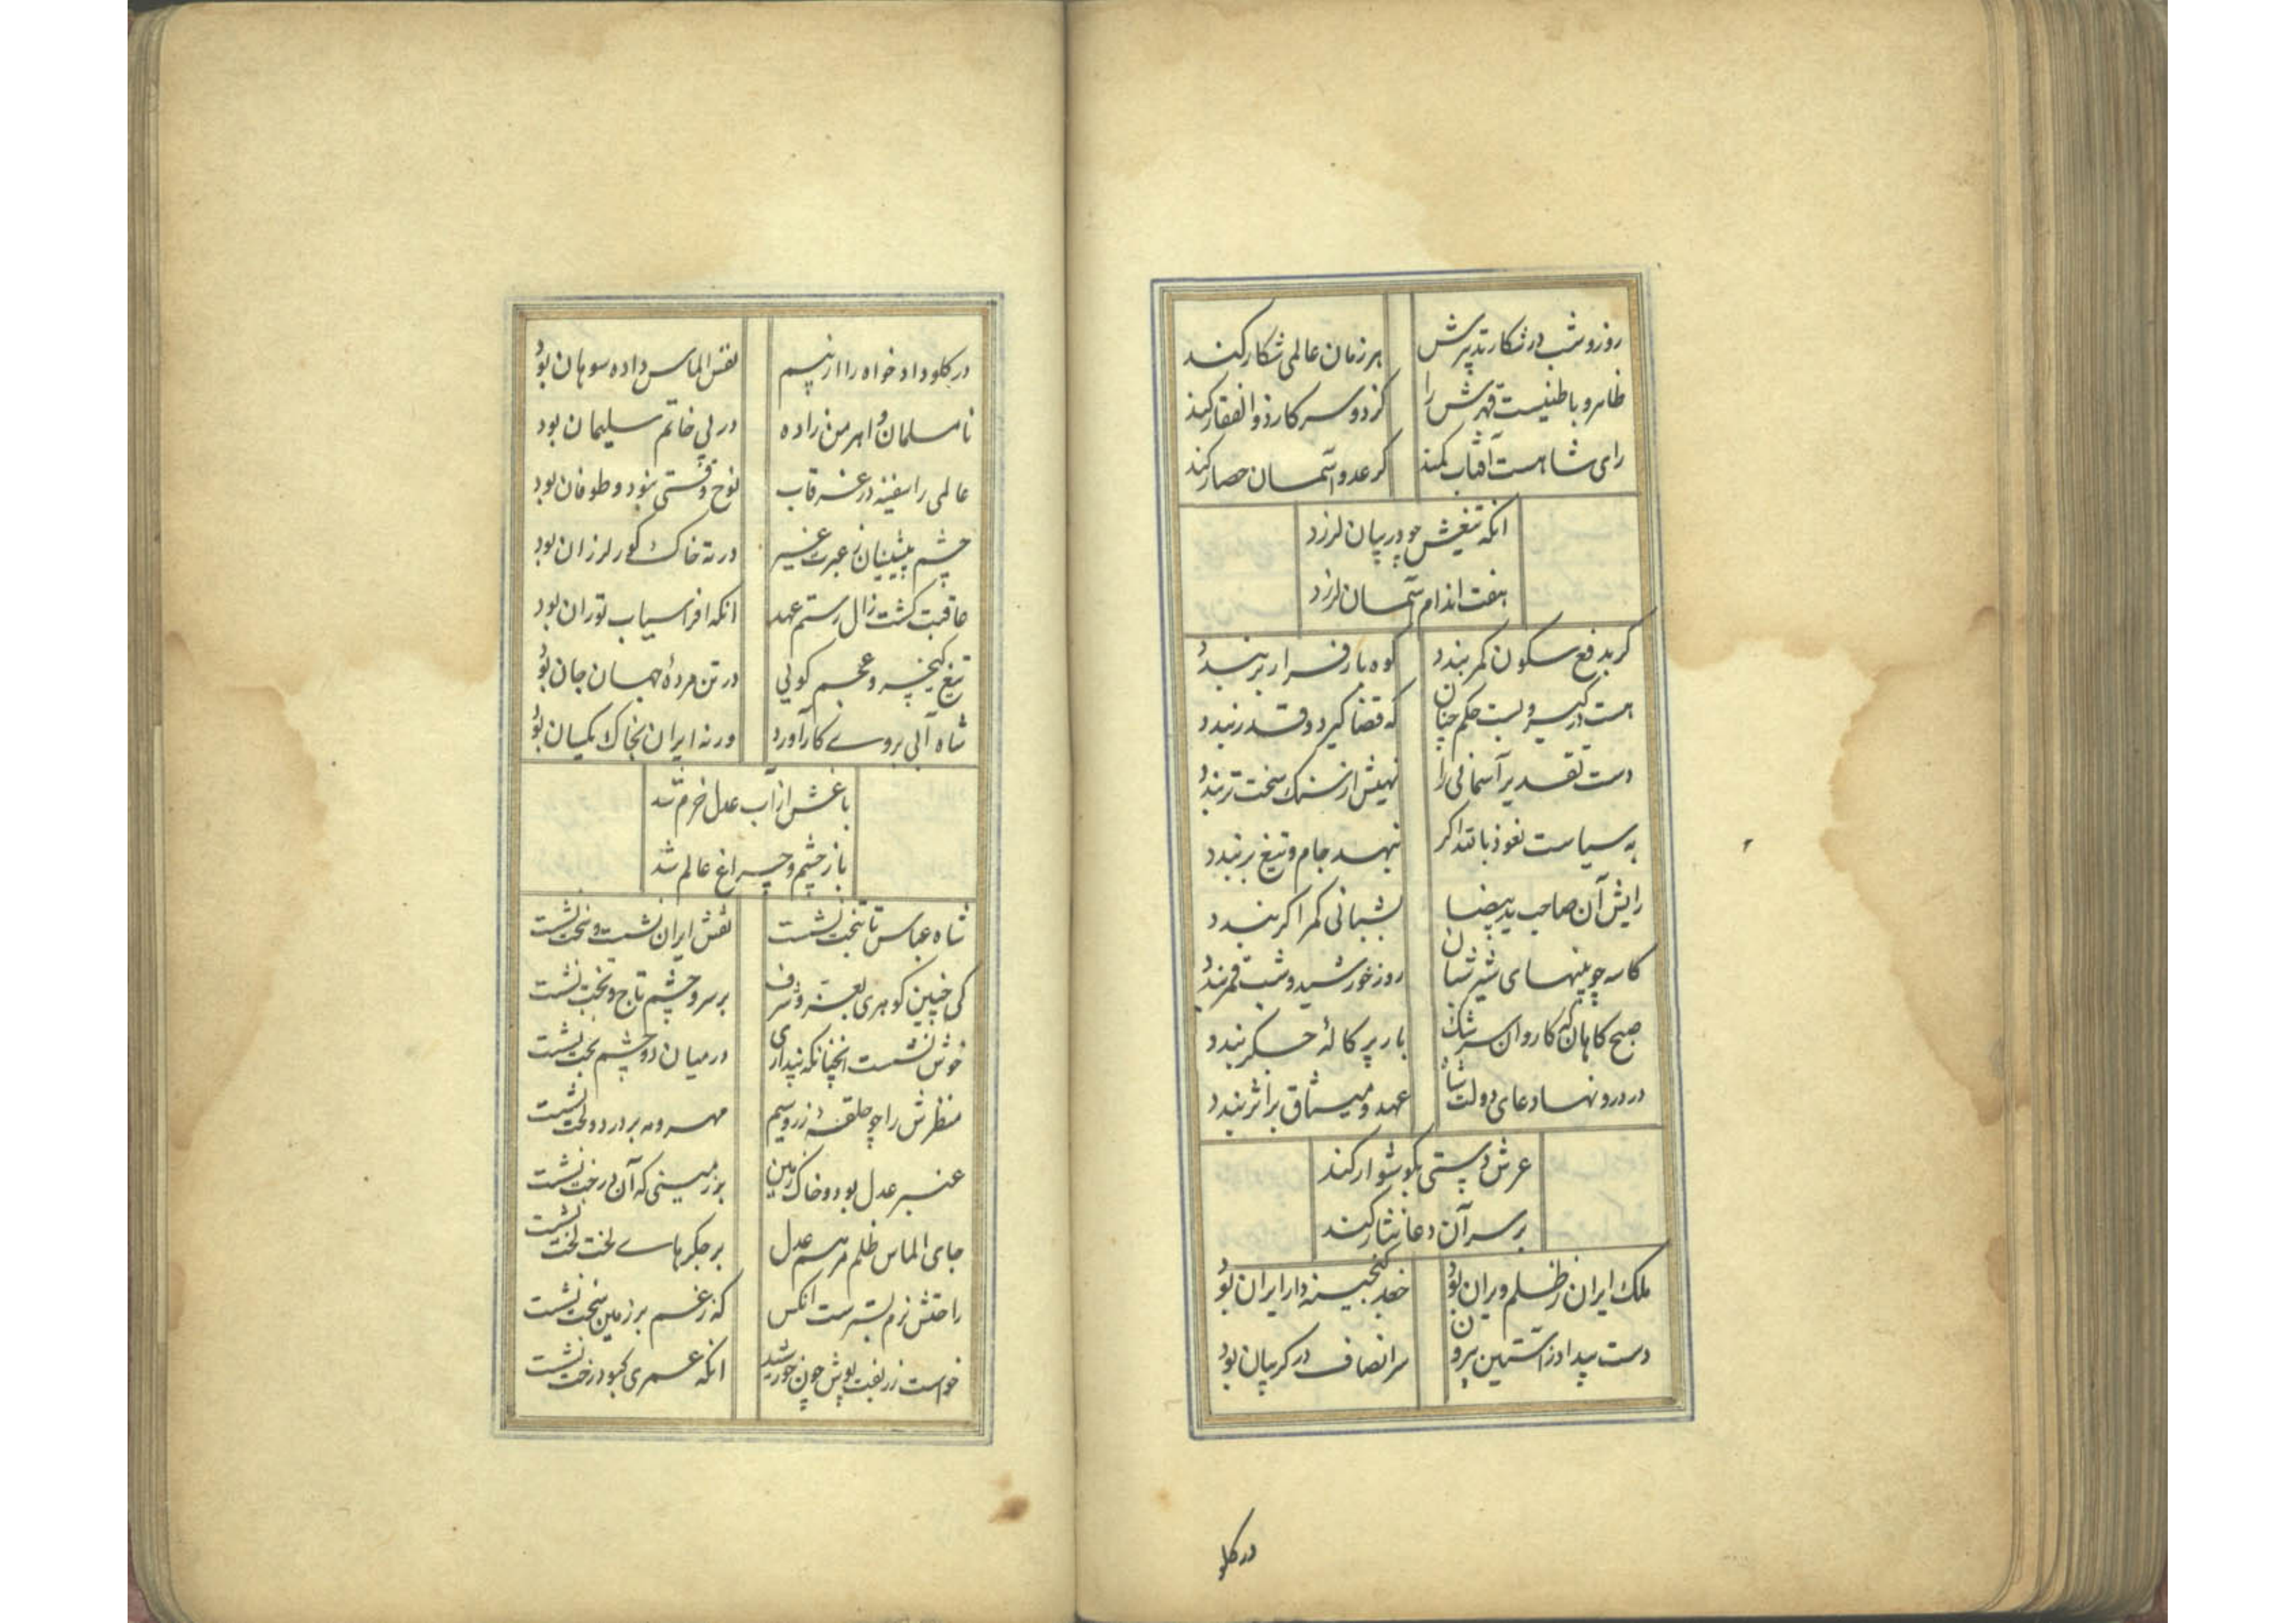 روز و شب در شکار تدبیرش هر زمان عالمی شکار کند
ظاهر و باطنیست قهرش را کز دو سر کار ذوالفقار کند
رای شاهست آفتاب کمند کر عدو آسمان حصار کند
انکه تیغش چو در میان لرزد
هفت اندام آسمان لرزد
کر بدفع سکون کمر بندد کوه بار فرار بر بندد
هست در کیر و بست حکم چنان که قضا کیرد و قدر بندد
دست تقدیر آسمانی را نهیش از سنک سخت تر بندد
به سیاست نعوذ بالله اکر نهد جام و تیغ بر بندد
رایش آن صاحب ید بیضا بشبانی کمر اکر بندد
کاسه چوبینهای شیر شبان روز خورشید و شب قمر بندد
صبح کاهان که کاروان سرشک بار پرکالهٔ جکر بندد
در درونها دعای دولت شاه عهد و میثاق بر اثر بندد
عرش دستی بکوشوار کند
بر سر آن دعا نثار کند
ملک ایران ز ظلم ویران بود جغد کنجینه دار ایران بود
دست بیداد ز آستین بیرون سر انصاف در کریبان بود
در کلو
در کلو داد خواه را از بیم نفس الماس داده سوهان بود
نامسلمان و اهرمن زاده در پی خاتم سلیمان بود
عالمی را سفینه در غرقاب نوح وقتی نبود و طوفان بود
چشم پیشینیان ز عبرت غیر در ته خاک کور لرزان بود
عاقبت کشت زال رستم عهد انکه افراسیاب توران بود
تیغ کیخسرو عجم کویی در تن مردهٔ جهان جان بود
شاه آبی بروی کار آورد ورنه ایران بخاک یکسان بود
باغش از آب عدل خرم شد
باز چشم و چراغ عالم شد
شاه عباس تا بتخت نشست نقش ایران نشست و سخت نشست
کی چنین کوهری بعز و شرف بر سر و چشم تاج و تخت نشست
خوش نشست انچنانکه پنداری در میان دو چشم بخت نشست
منظرش را چو حلقهٔ زر و سیم مهر و مه بر در دو لخت نشست
عنبر عدل بود و خاک زمین بر زمینی که آن درخت نشست
جای الماس ظلم مرهم عدل بر جکرهای لخت لخت نشست
راحتش نرم بسترست انکس که ز غم بر زمین سخت نشست
خواست زربفت پوش چون خورشید انکه عمری کبود رخت نشست